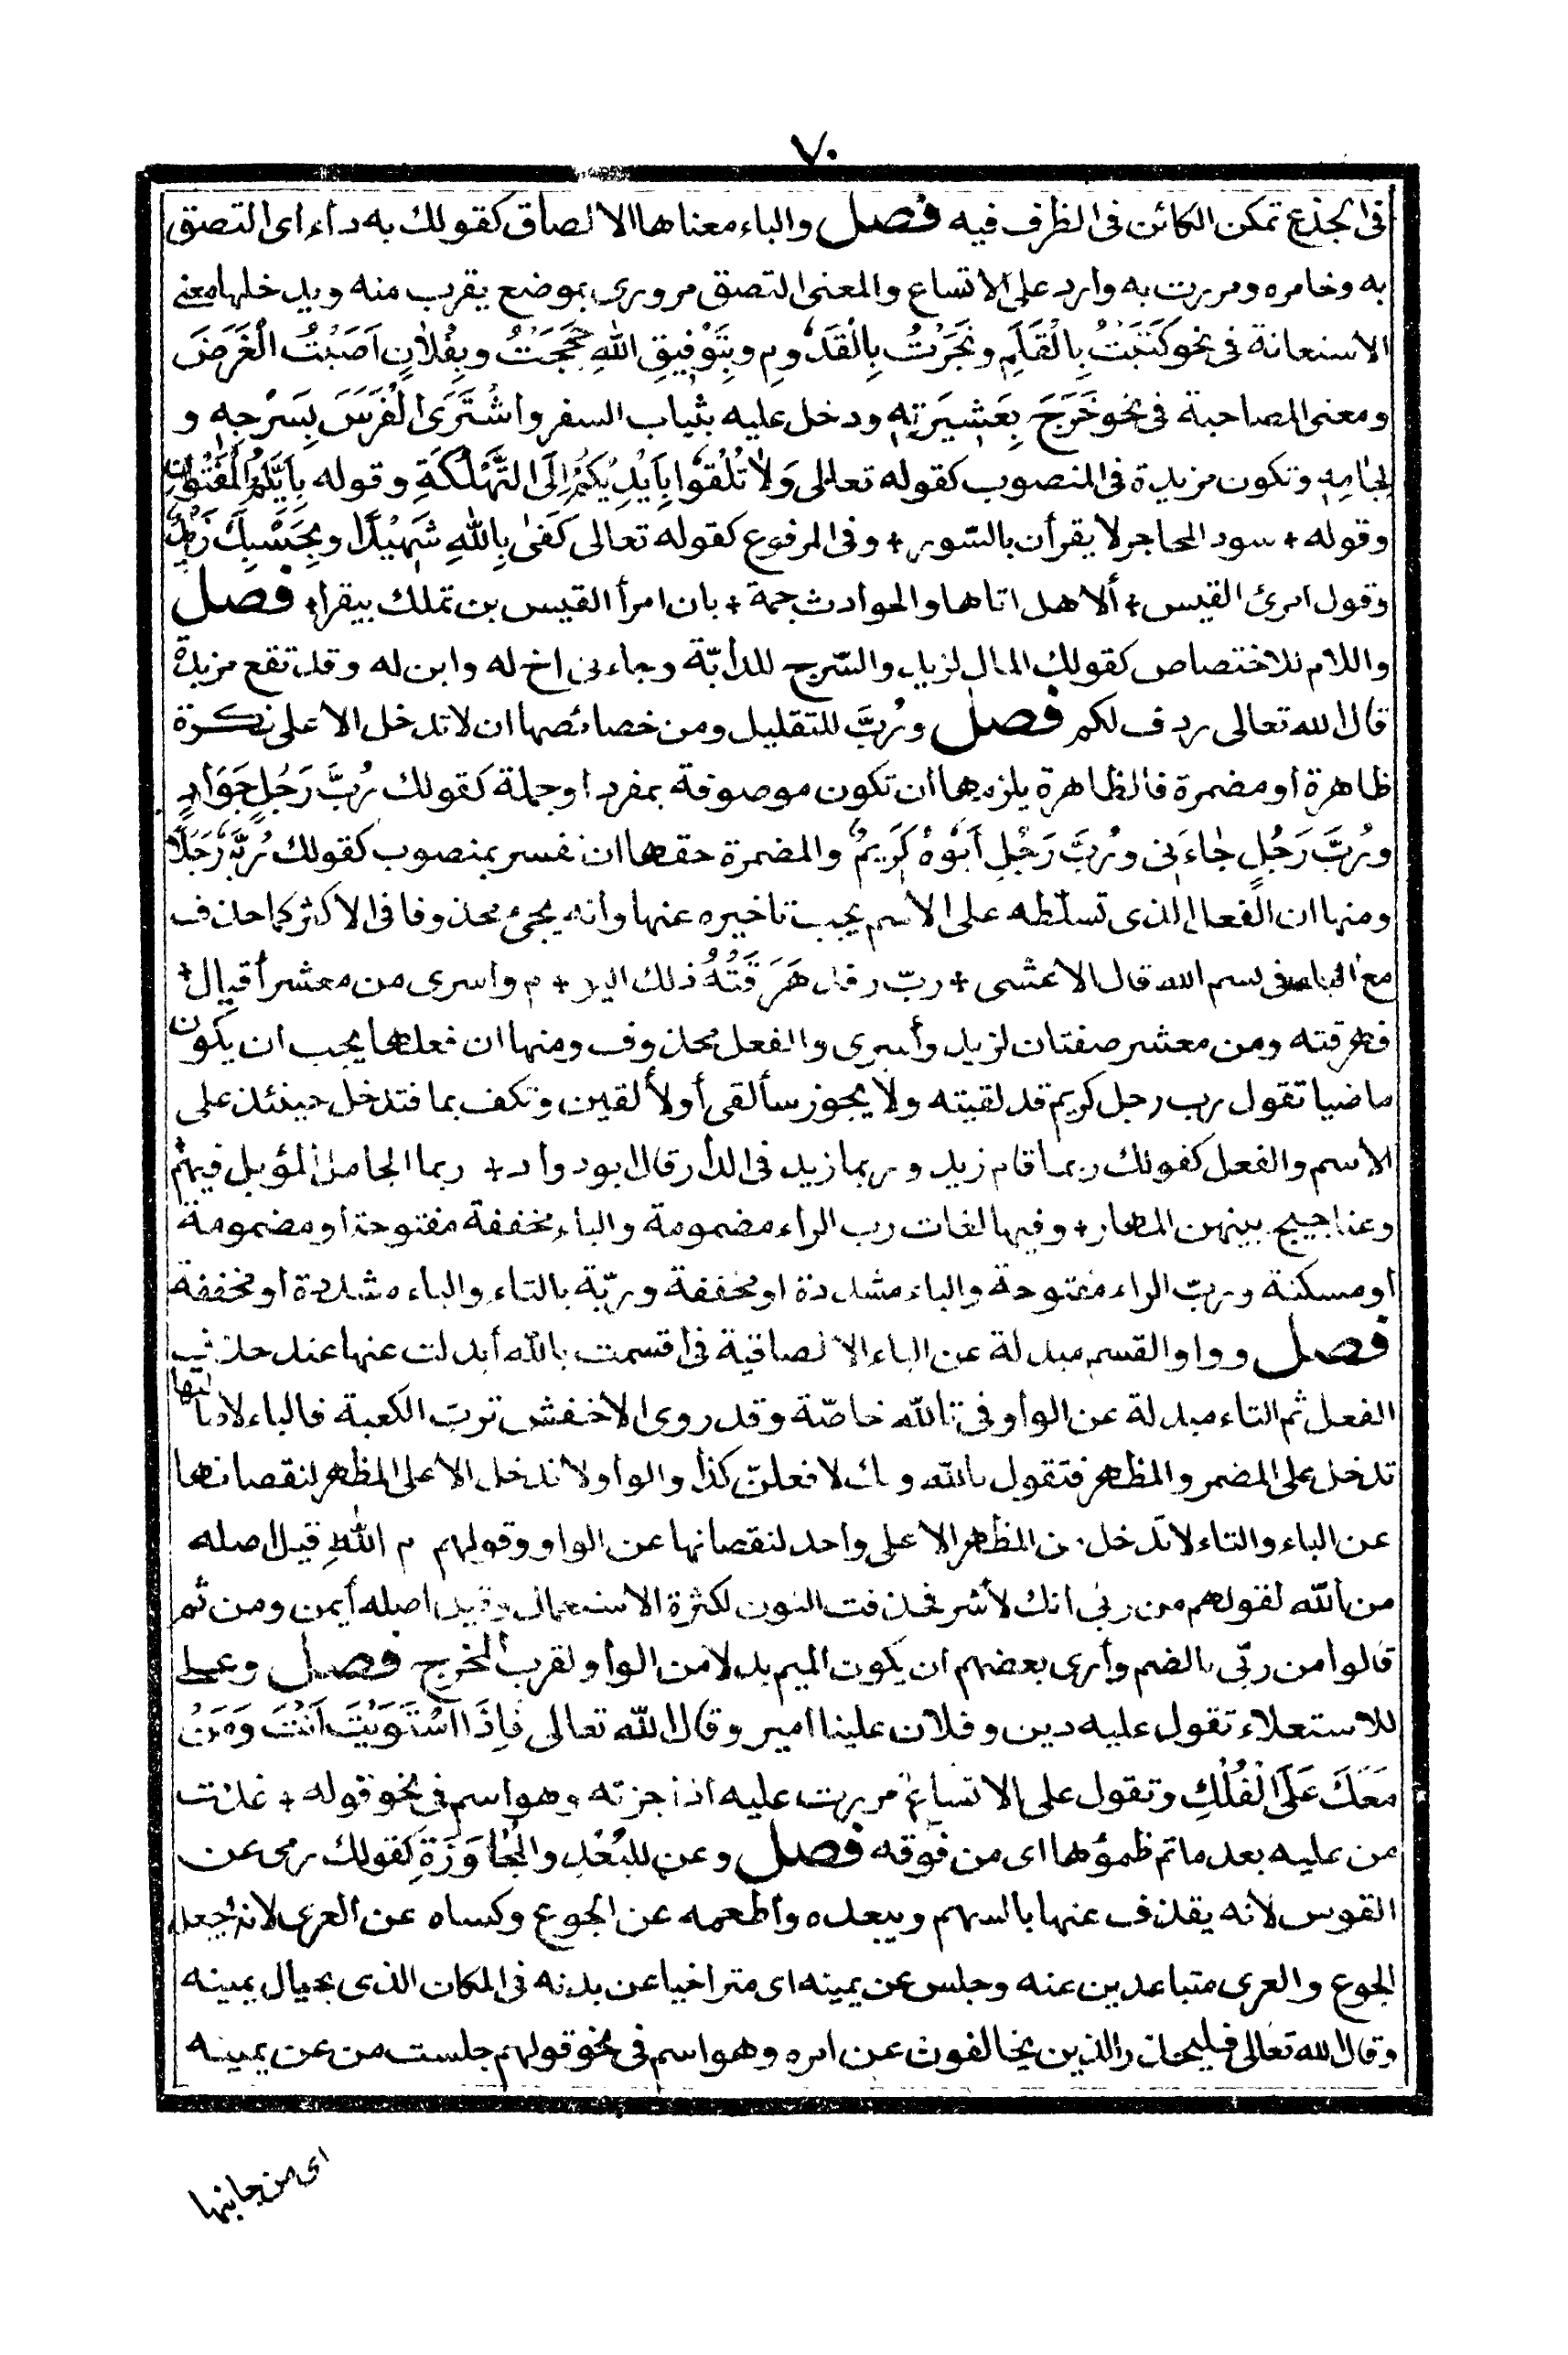 ٧٠
فى الجذع تمكن الكائن فى الظرف فيه فصل والباء معناها الالصاق كقولك به داء اى التصق
به وخامره ومررت به وارد على الاتساع والمعنى التصق مرورى بموضع يقرب منه ويدخلها معنى
الاستعانة فى نحو كَتَبْتُ بِالْقَلَمِ ونَجَرْتُ بِالْقَدُومِ وبِتَوْفِيقِ اللهِ حَجَجْتُ وبِفُلَانٍ اَصَبْتُ الْغَرَضَ
ومعنى المصاحبة فى نحو خَرَجَ بِعَشِيرَتِهِ ودخل عليه بثياب السفر واشْتَرَى الْفَرَسَ بِسَرْجِهِ و
لِجَامِهِ وتكون مزيدة فى المنصوب كقوله تعالى وَلَا تُلْقُوا بِاَيْدِيكُمْ اِلَى التَّهْلُكَةِ وقوله بِاَيِّكُمُ الْمَفْتُونُ
وقوله + سود المحاجر لا يقرأن بالسّور + وفى المرفوع كقوله تعالى كَفىٰ بِاللهِ شَهِيْدًا وبِحَسْبِكَ زَيْدٌ
وقول امرئ القيس + ألا هل اتاها والحوادث جمة + بان امرأ القيس بن تملك بيقرا + فصل
واللام للاختصاص كقولك المال لزيد والسّرج للدابّة وجاءنى اخ له وابن له وقد تقع مزيدة
قال الله تعالى ردف لكم فصل ورُبَّ للتقليل ومن خصائصها ان لا تدخل الا على نكرة
ظاهرة او مضمرة فالظاهرة يلزمها ان تكون موصوفة بمفرد او جملة كقولك رُبَّ رَجُلٍ جَوَادٍ
ورُبَّ رَجُلٍ جَاءَنِى ورُبَّ رَجُلٍ أَبُوهُ كَرِيمٌ والمضمرة حقها ان تفسر بمنصوب كقولك رُبَّهُ رَجُلًا
ومنها ان الفعل الذى تسلّطه على الاسم يجب تاخيره عنها وانه يجئ محذوفا فى الاكثر كما حذف
مع الباء فى بسم الله قال الاعشى + ربّ رفد هَرَقْتُهُ ذلك اليو + م واسرى من معشر أقيال +
فهرقته ومن معشر صفتان لرفد وأسرى والفعل محذوف ومنها ان فعلها يجب ان يكون
ماضيا تقول رب رجل كريم قد لقيته ولا يجوز سألقى أو لألقين وتكف بما فتدخل حينئذ على
الاسم والفعل كقولك ربما قام زيد وربما زيد فى الدار قال ابو دواد + ربما الجامل المؤبل فيهم +
وعناجيج بينهن المهار + وفيها لغات رب الراء مضمومة والباء مخففة مفتوحة او مضمومة
او مسكنة وربّ الراء مفتوحة والباء مشددة او مخففة وربّة بالتاء والباء مشددة او مخففة
فصل وواو القسم مبدلة عن الباء الالصاقية فى اقسمت بالله أبدلت عنها عند حذف
الفعل ثم التاء مبدلة عن الواو فى تالله خاصّة وقد روى الاخفش تربّ الكعبة فالباء لاصالتها
تدخل على المضمر والمظهر فتقول بالله وبك لافعلنّ كذا والواو لا تدخل الا على المظهر لنقصانها
عن الباء والتاء لا تدخل من المظهر الا على واحد لنقصانها عن الواو وقولهم م اللهِ قيل اصله
من الله لقولهم من ربى انك لأشر فحذفت النون لكثرة الاستعمال وقيل اصله أيمن ومن ثم
قالوا من ربّى بالضم وأرى بعضهم ان يكون الميم بدلا من الواو لقرب المخرج فصل وعلى
للاستعلاء تقول عليه دين وفلان علينا امير وقال الله تعالى فَاِذَا اسْتَوَيْتَ اَنْتَ وَمَنْ
مَعَكَ عَلَى الْفُلْكِ وتقول على الاتساع مررت عليه اذا جزته وهو اسم فى نحو قوله + غدت
من عليه بعد ما تم ظمؤها اى من فوقه فصل وعن للبُعْدِ والْمُجَاوَزَةِ كقولك رمى عن
القوس لانه يقذف عنها بالسهم ويبعده وأطعمه عن الجوع وكساه عن العرى لانه يجعل
الجوع والعرى متباعدين عنه وجلس عن يمينه اى متراخيا عن بدنه فى المكان الذى بحيال يمينه
وقال الله تعالى فليحذر الذين يخالفون عن امره وهو اسم فى نحو قولهم جلست من عن يمينه
اى من جانبها